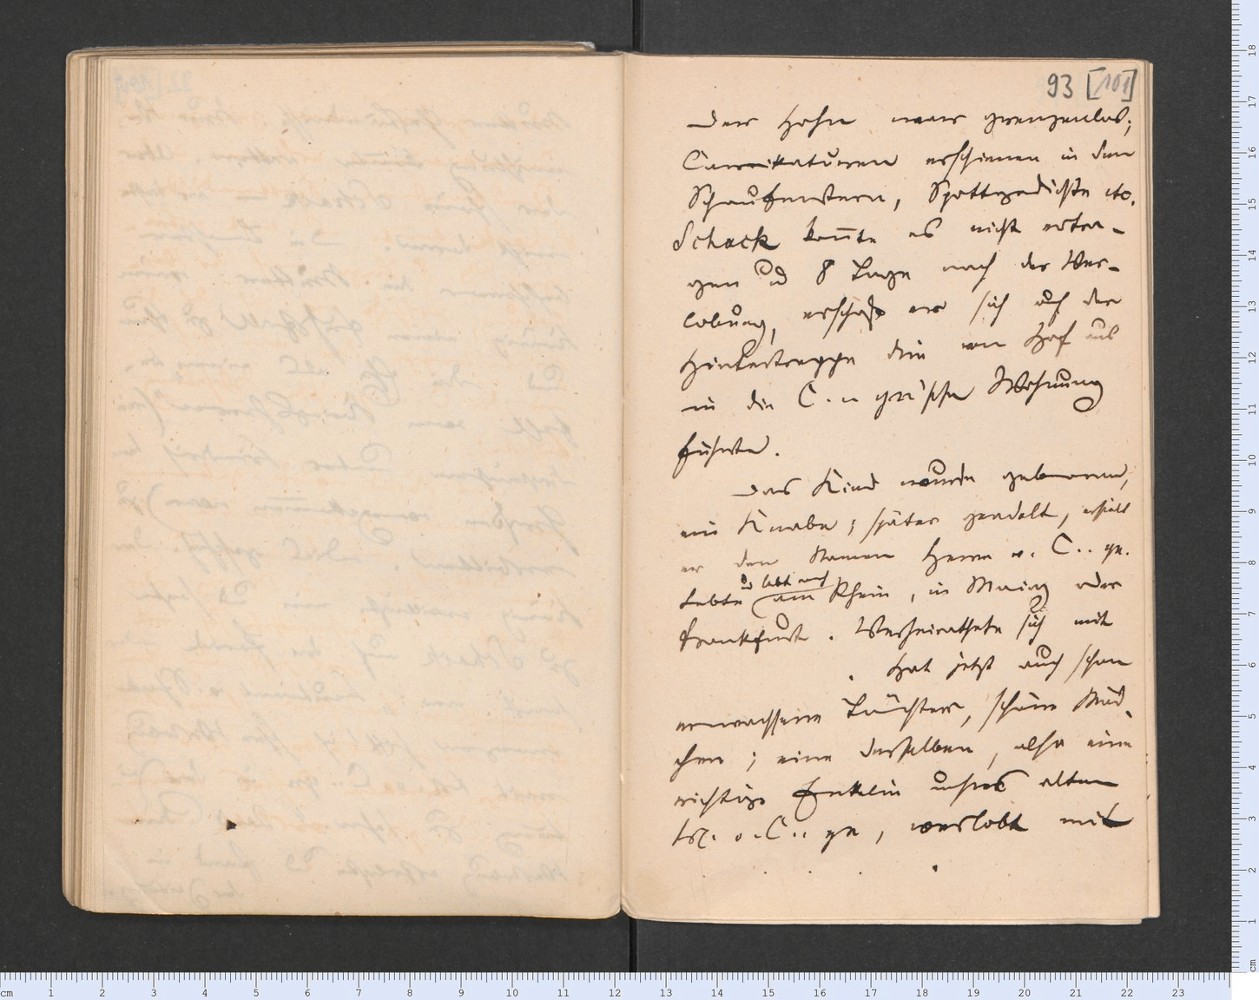 93 [101]
Der Hohn war grenzenlos;
Carrikaturen erschienen in den
Schaufenstern, Spottgedichte etc.
Schack konnte es nicht ertra-
gen und 8 Tage nach der Ver-
lobung, erschoß er sich auf der
Hintertreppe die vom Hof aus
in die C..n ge'sche Wohnung
führte.
Das Kind wurde geboren,
ein Knabe; später geadelt, erhielt
er den Namen Herr v. C.. ge.
u lebt noch
Lebte am Rhein, in Mainz oder
Frankfurt. Verheirathete sich mit
. Hat jetzt auch schon
erwachsene Töchter, schöne Mäd-
chen; eine derselben, also eine
richtige Enkelin unsres alten
v. C.. ge, verlobt mit
. . . . .